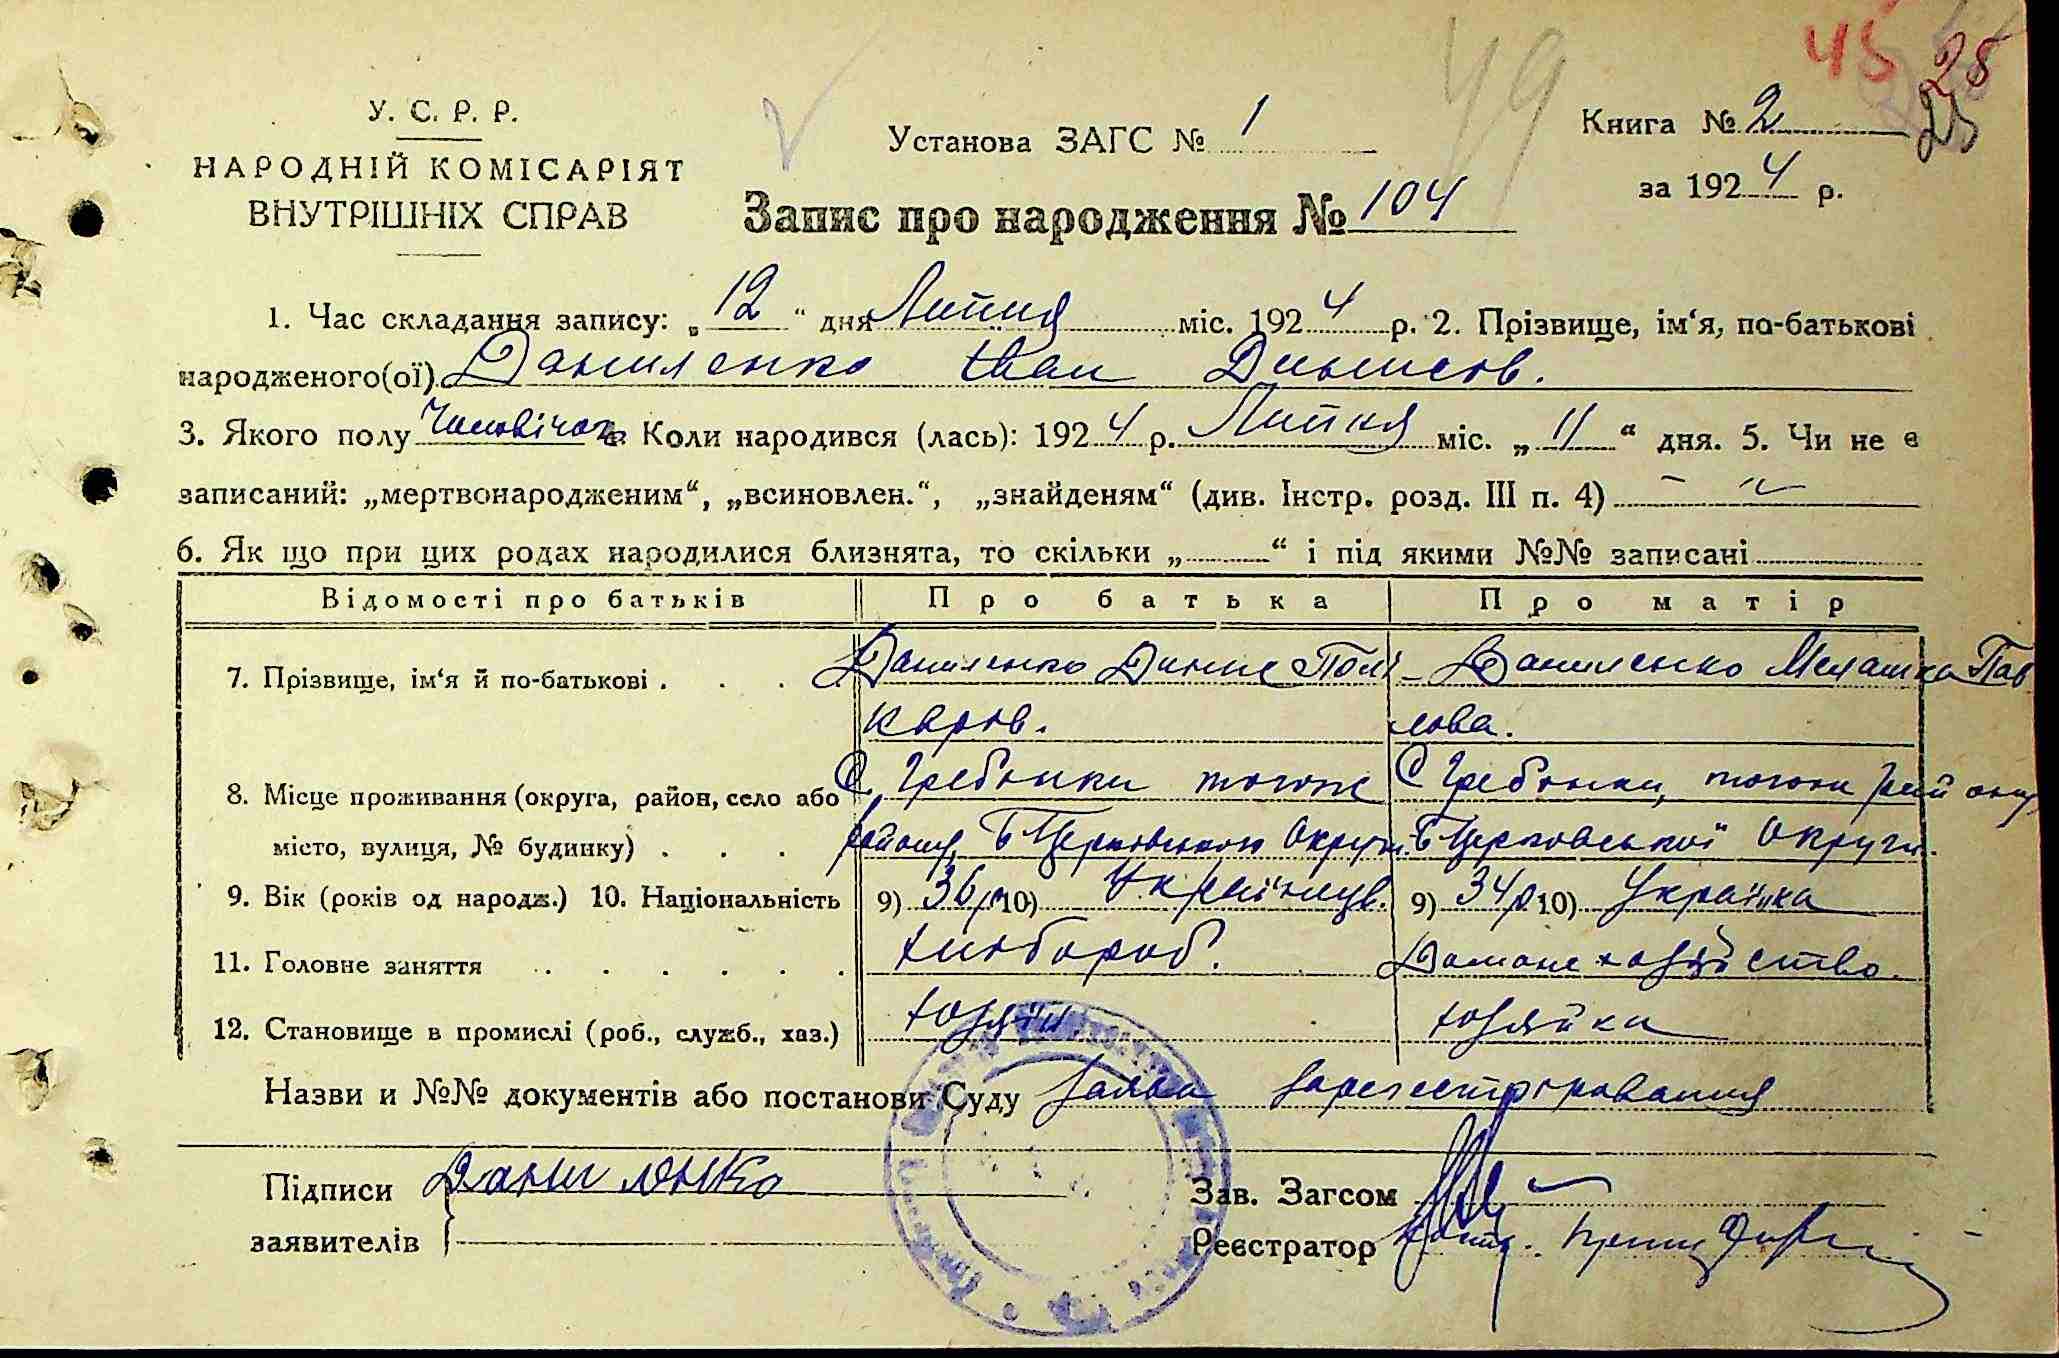 45 28
25
49
У. С. Р. Р.
НАРОДНІЙ КОМІСАРІЯТ
ВНУТРІШНІХ СПРАВ
Установа ЗАГС № 1
Книга № 2
за 1924 р.
Запис про народження № 104
1. Час складання запису: „12“ дня Липня міс. 1924 р. 2. Прізвище, ім‘я, по-батькові
народженого(ої) Даниленко Іван Динисов.
3. Якого полу Чоловічого Коли народився (лась): 1924 р. Липня міс. „11“ дня. 5. Чи не є
записаний: „мертвонародженим“, „всиновлен.“, „знайденям“ (див. Інстр. розд. III п. 4) – „
6. Як що при цих родах народилися близнята, то скільки „ “ і під якими №№ записані
Відомості про батьків Про батька Про матір
7. Прізвище, ім‘я й по-батькові . . . . Даниленко Динис Полі- Даниленко Мелашка Пав
каров. лова.
8. Місце проживання (округа, район, село або С Гребінки тогож С Гребінки, тогож рай
місто, вулиця, № будинку) . . . району, Б Церковського Округи. Б Церковської Округи.
9. Вік (років од народж.) 10. Національність 9) 36 р 10) Українець. 9) 34 р 10) Українка
11. Головне заняття . . . . . . Хлібороб. Домашнє хозяйство.
12. Становище в промислі (роб., служб., хаз.) Хозяїн. Хозяйка
Назви и №№ документів або постанови Суду
Підписи Даниленко Зав. Загсом
заявителів Реєстратор